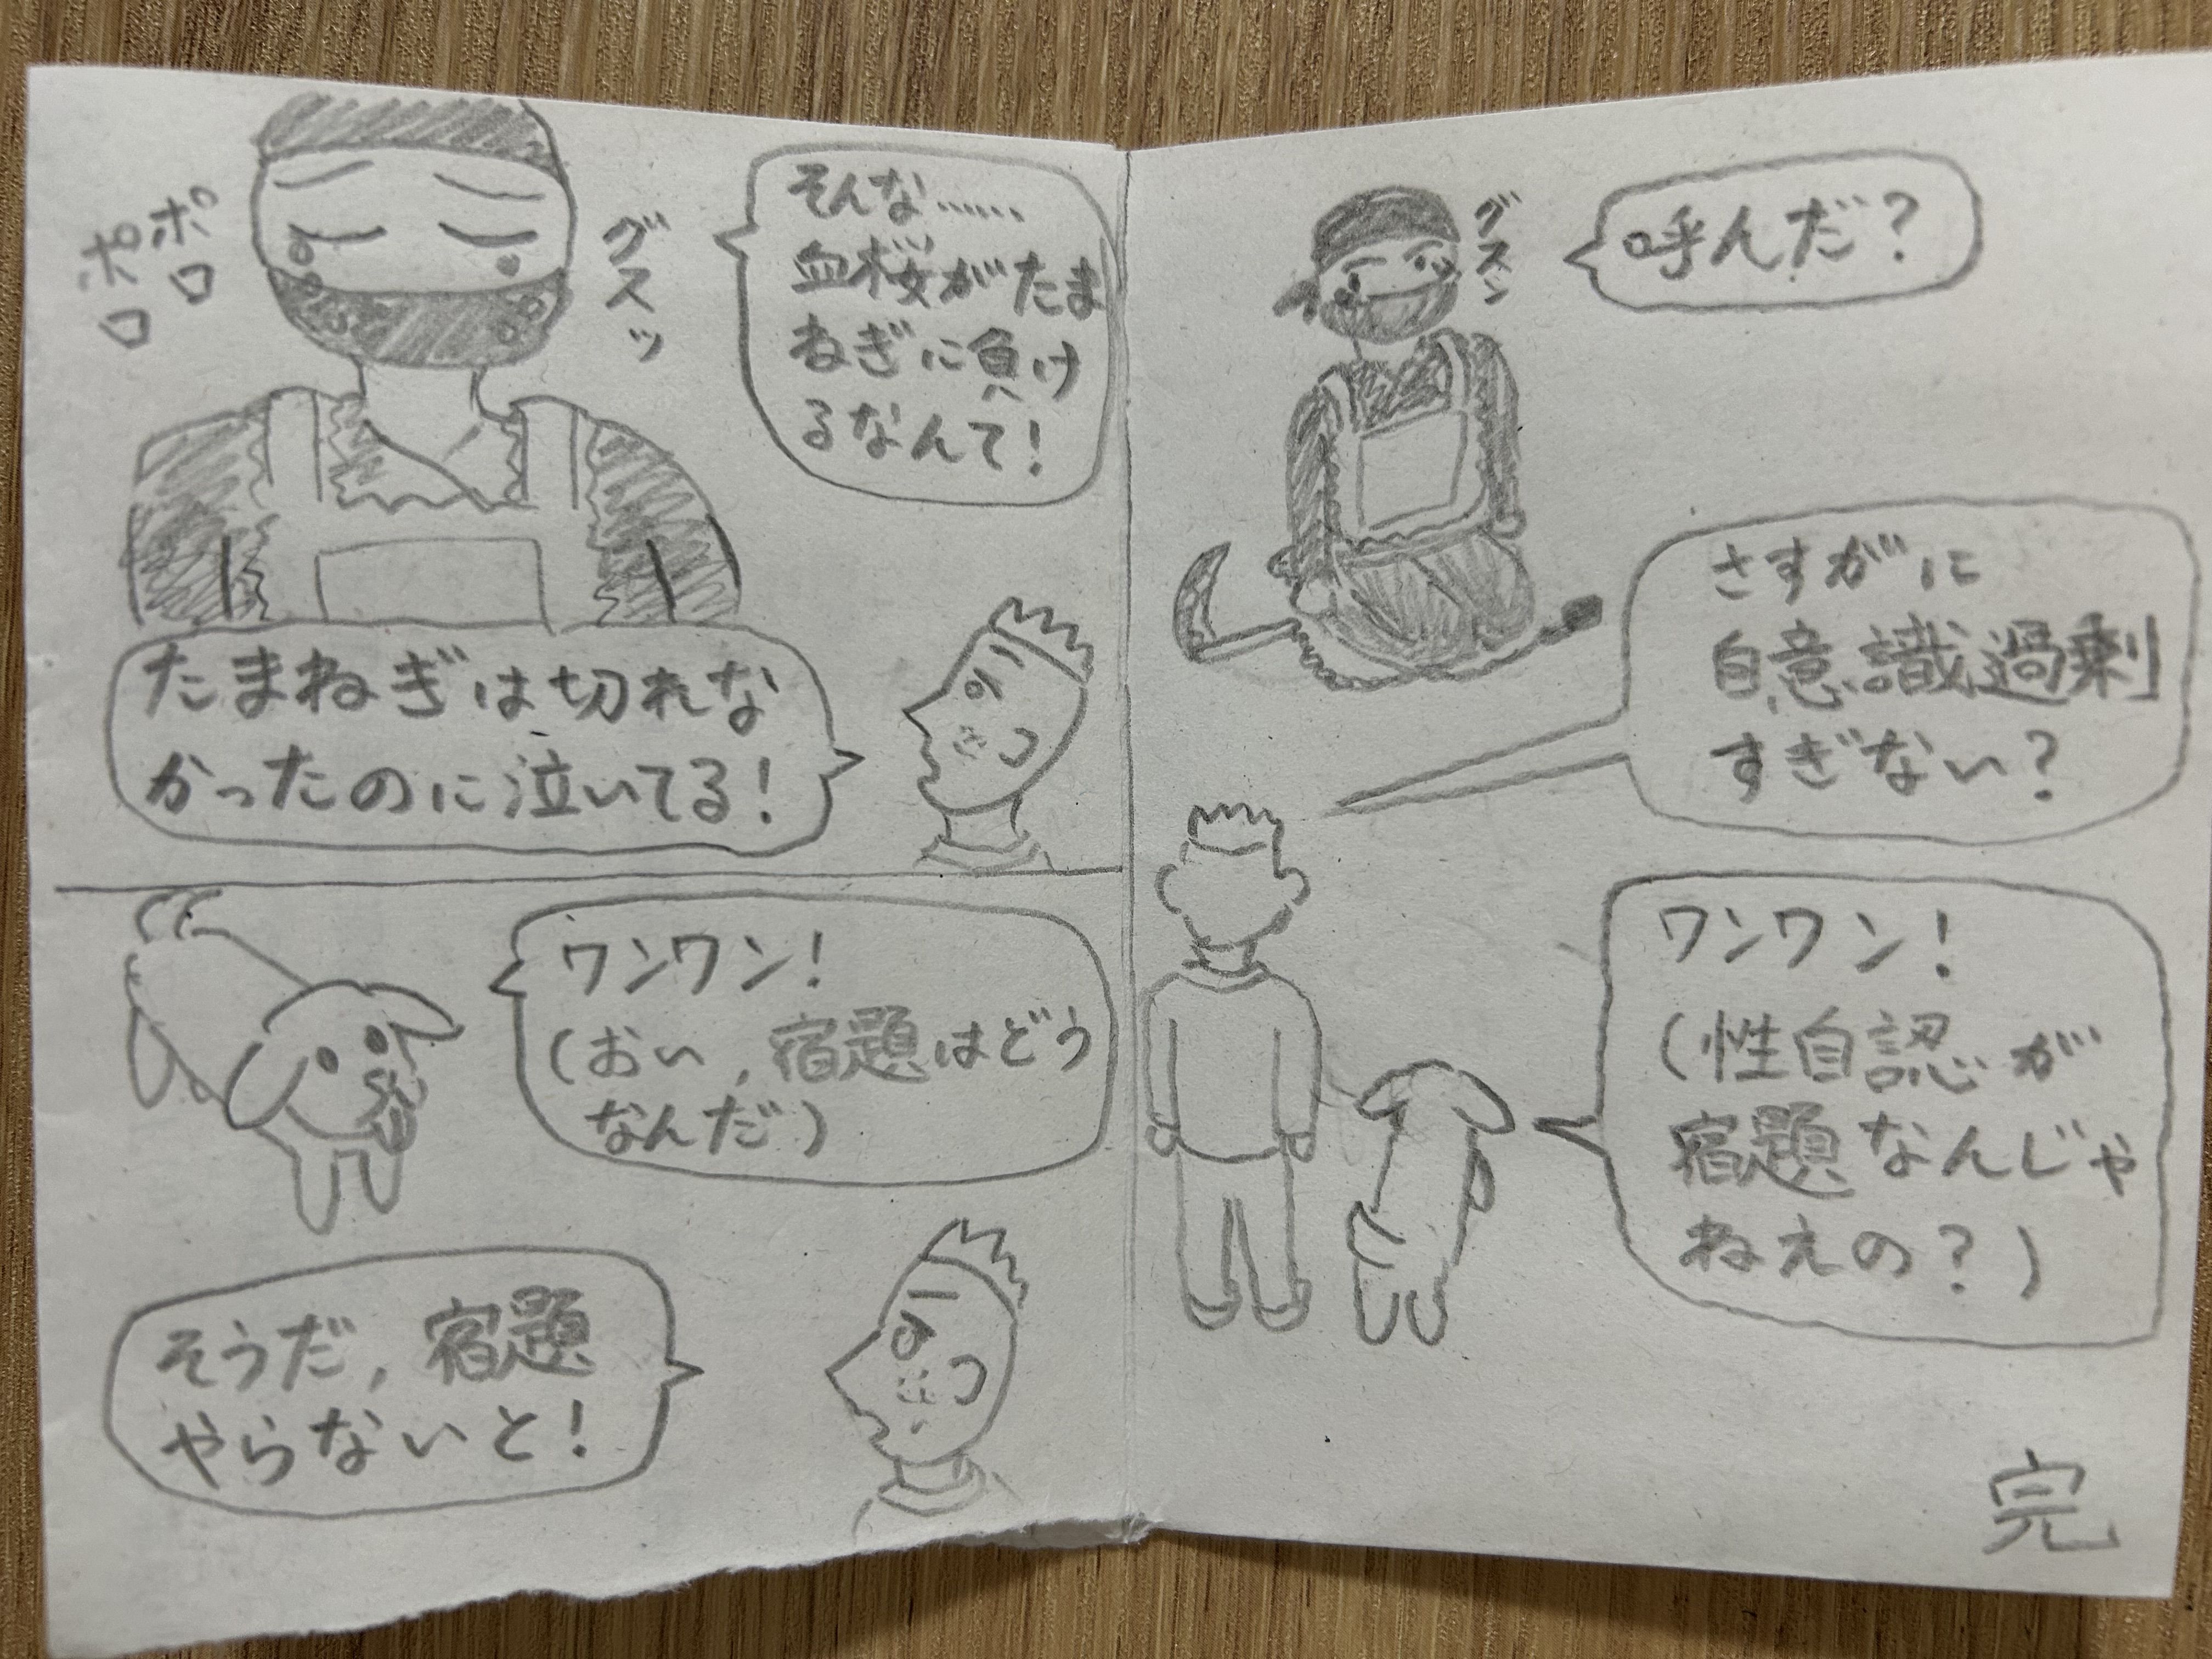 ポロ
ポロ
グスッ
そんな……
血桜がたま
ねぎに負け
るなんて!
たまねぎは切れな
かったのに泣いてる!
ワンワン!
(おい,宿題はどう
なんだ)
そうだ,宿題
やらないと!
グスン
呼んだ?
さすがに
自意識過剰
すぎない?
ワンワン!
(性自認が
宿題なんじゃ
ねえの?)
完